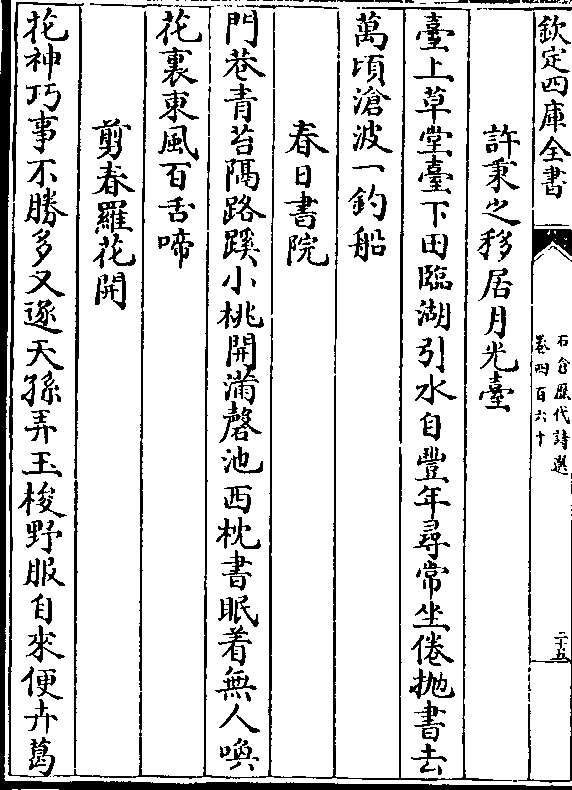 欽定四庫全書
石倉歷代詩選
卷四百六十
二十五
許秉之移居月光臺
臺上草堂臺下田臨湖引水自豐年尋常坐倦抛書去
萬頃滄波一釣船
春日書院
門巷青苔隅路蹊小桃開滿磬池西枕書眠着無人喚
花裏東風百舌啼
剪春羅花開
花神巧事不勝多又逐天孫弄玉梭野服自來便卉葛